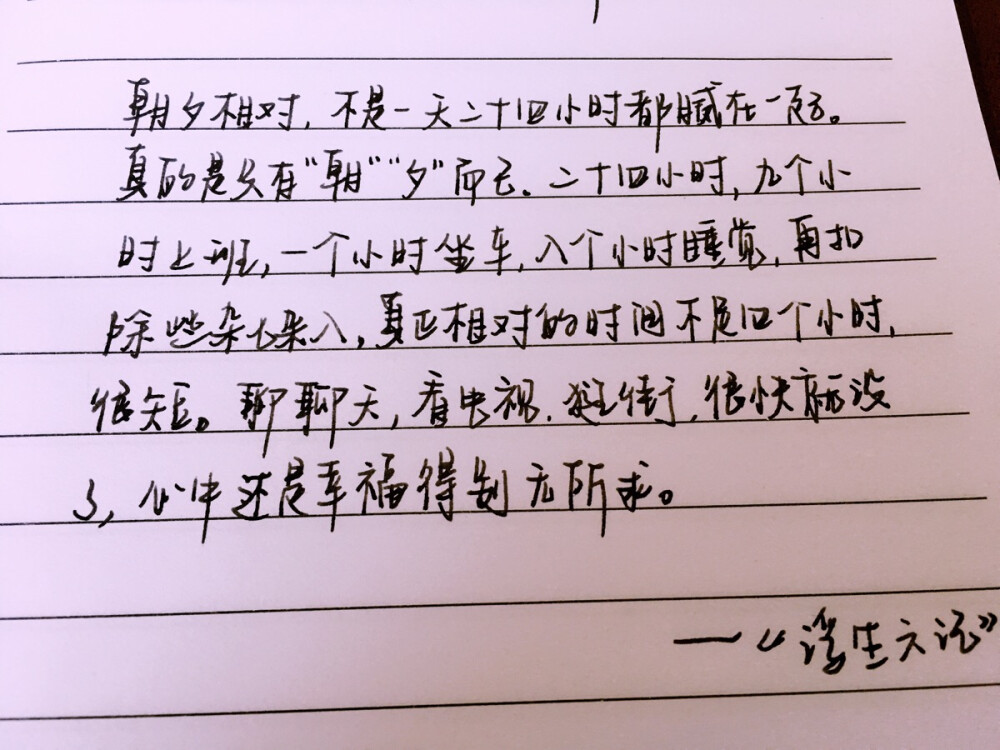 朝夕相对，不是一天二十四小时都腻在一起。
真的是只有“朝”“夕”而已．二十四小时，九个小
时上班，一个小时坐车，八个小时睡觉，再扣
除些杂七杂八，真正相对的时间不足四个小时，
很短。聊聊天，看电视．逛街，很快就没
了，心中还是幸福得别无所求。
——《浮生六记》